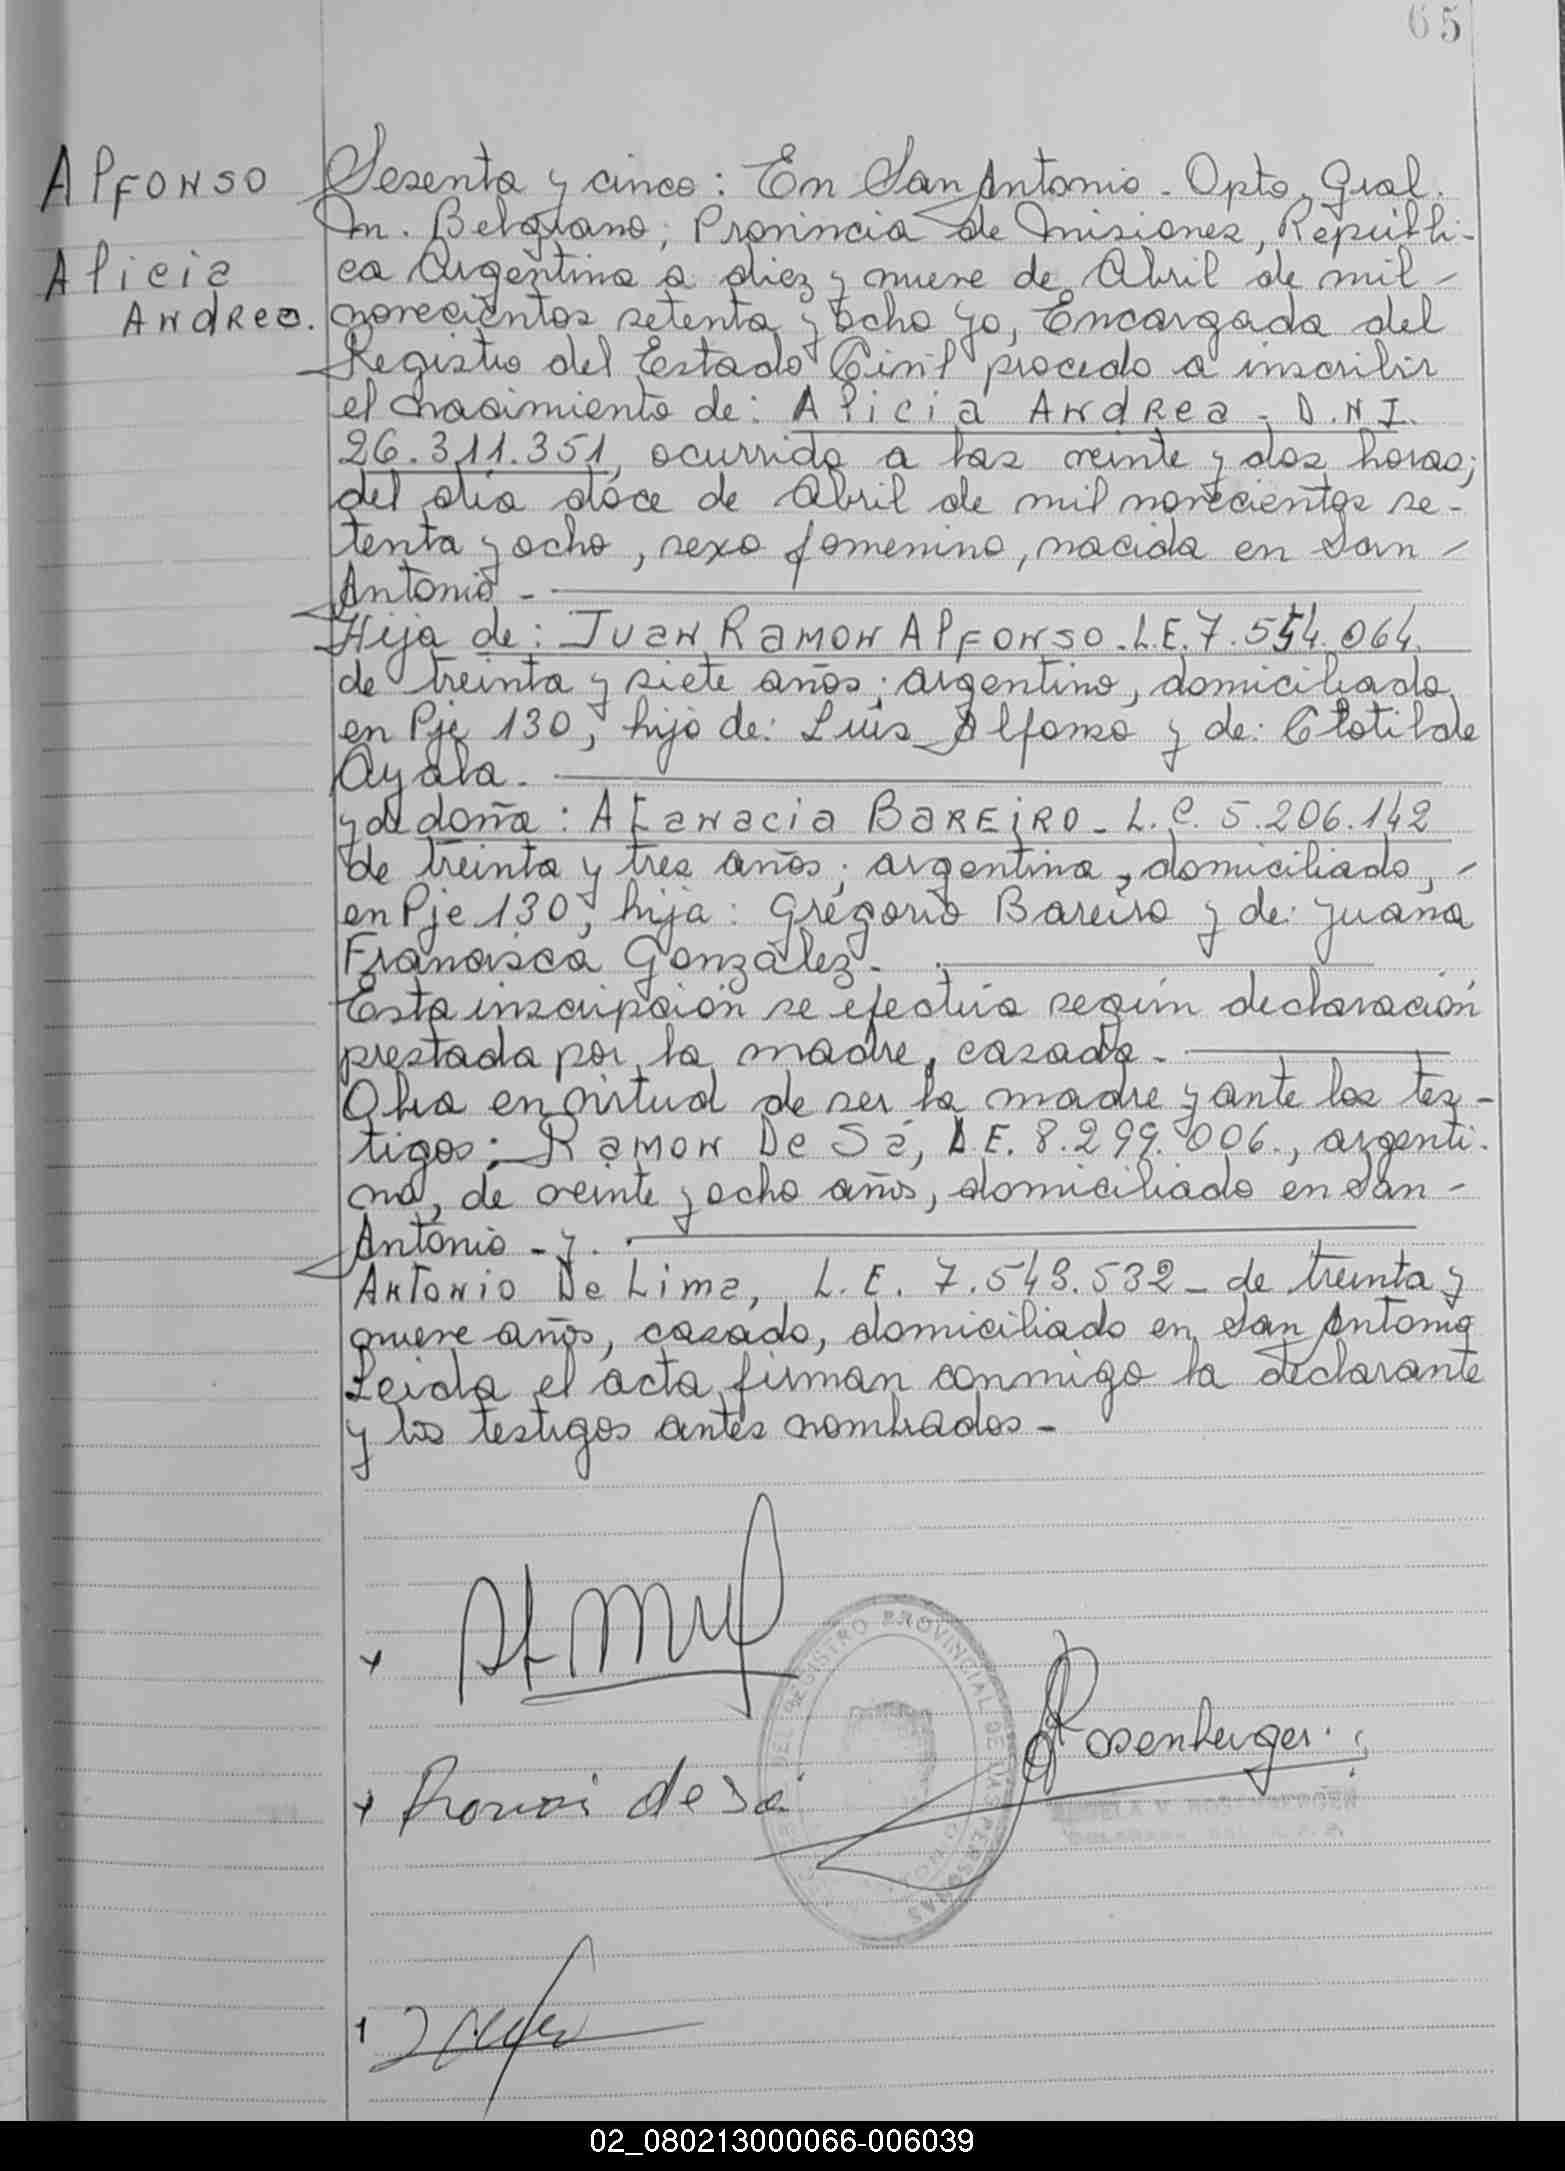 65
Alfonso
Alicia
Andrea.
Sesenta y cinco: En San Antonio - Dpto. Gral.
M. Belgrano; Provincia de Misiones, Repúbli-
ca Argentina a diez y nueve de Abril de mil -
novecientos setenta y ocho yo, Encargada del
Registro del Estado Civil procedo a inscribir
el nacimiento de: Alicia Andrea - D.N.I.
26.311.351, ocurrido a las veinte y dos horas;
del día doce de Abril de mil novecientos se-
tenta y ocho, sexo femenino, nacida en San -
Antonio -
Hija de: Juan Ramon Alfonso - L.E. 7.554.064.
de treinta y siete años; argentino, domiciliado
en Pje 130, hijo de: Luis Alfonso y de: Clotilde
Ayala -
y de doña: Atanacia Bareiro - L.C. 5.206.142
de treinta y tres años; argentina, domiciliada, -
en Pje 130, hija: Gregorio Bareiro y de: Juana
Francisca González -
Esta inscripción se efectúa según declaración
prestada por la madre, casada -
Obra en virtud de ser la madre y ante los tes-
tigos: Ramon De Sá, L.E. 8.299.006., argenti-
no, de veinte y ocho años, domiciliado en San -
Antonio - y.
Antonio De Lima, L.E. 7.543.532 - de treinta y
nueve años, casado, domiciliado en San Antonio
Leida el acta firman conmigo la declarante
y los testigos antes nombrados -
DEL REGISTRO PROVINCIAL DE LAS PERSONAS
Rosenberger
Ramon de Sá
02_080213000066-006039